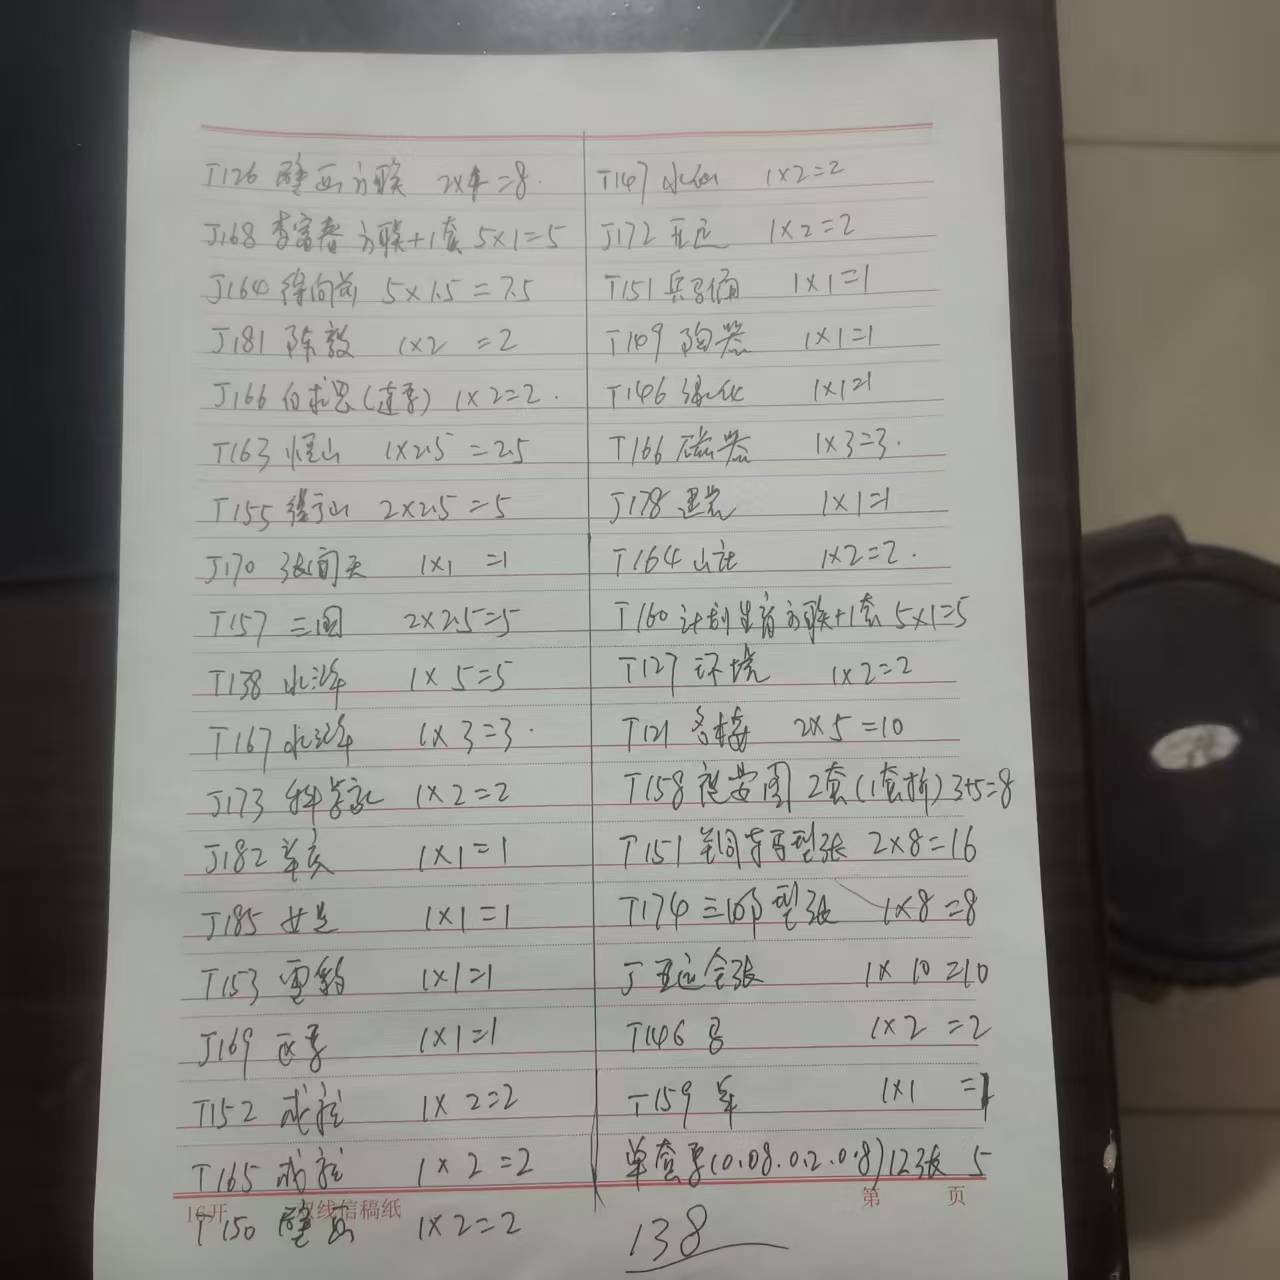 T126 壁画方联 2×4=8.
J168 李富春方联+1套 5×1=5
J164 徐向前 5×1.5=7.5
J181 陈毅 1×2=2
J166 白求恩(连票) 1×2=2.
T163 恒山 1×2.5=2.5
T155 衡山 2×2.5=5
J170 张闻天 1×1=1
T157 三国 2×2.5=5
T138 水浒 1×5=5
T167 水浒 1×3=3.
J173 科学家 1×2=2
J182 辛亥 1×1=1
J185 女足 1×1=1
T153 雪豹 1×1=1
J169 1×1=1
T152 成就 1×2=2
T165 成就 1×2=2
T150 壁画 1×2=2
T147 水仙 1×2=2
J172 亚运 1×2=2
T151 兵马俑 1×1=1
T149 陶器 1×1=1
T146 绿化 1×1=1
T166 磁器 1×3=3.
J178 1×1=1
T164 山庄 1×2=2.
T160 计划生育方联+1套 5×1=5
T127 环境 1×2=2
T121 名楼 2×5=10
T158 夜宴图 2套(1套折) 3+5=8
T151 型张 2×8=16
T174 三 型张 1×8=8
J 亚运全张 1×10=10
T146 马 1×2=2
T159 羊 1×1=1
单套票(0.08.0.2.0.8)12张 5
16开 双线信稿纸 第 页
138